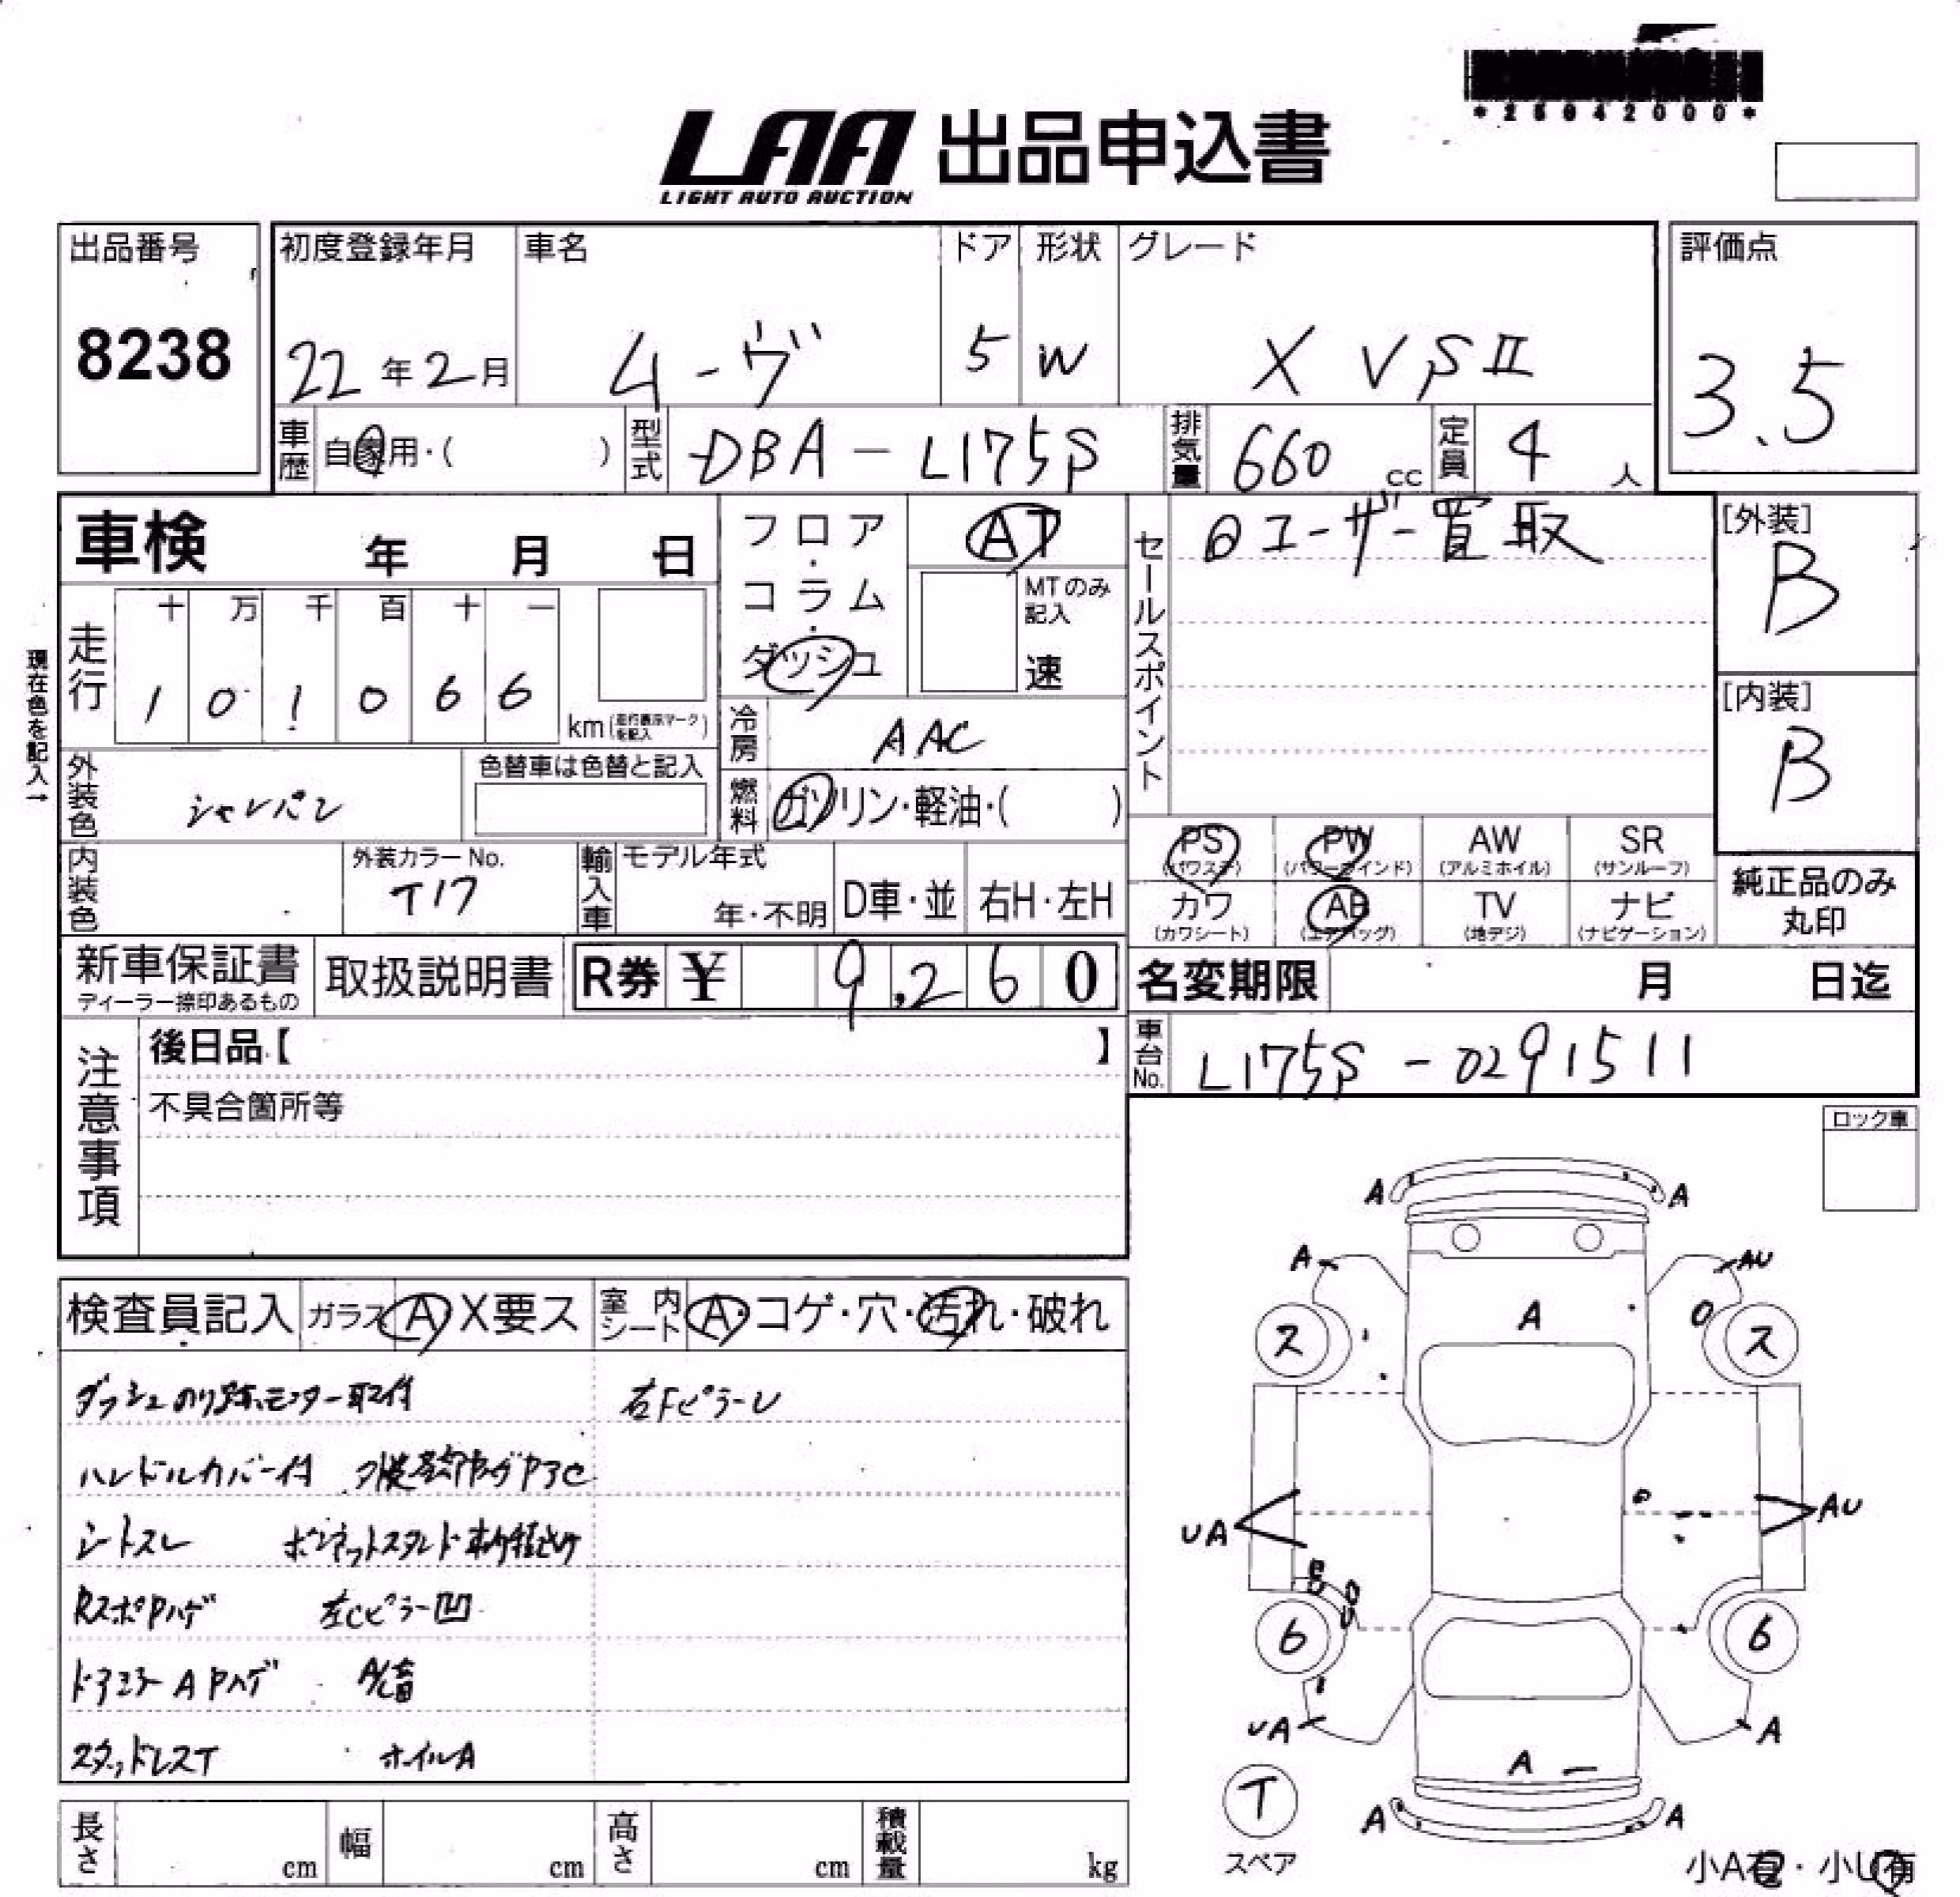 *25042000*
LAA 出品申込書
LIGHT AUTO AUCTION
出品番号
8238
初度登録年月
22年2月
車名
ムーヴ
ドア
5
形状
W
グレード
X VSⅡ
評価点
3.5
車歴 自家用・( )
型式 DBA-L175S
排気量 660 cc
定員 4 人
車検 年 月 日
走行
十 万 千 百 十 一
1 0 1 0 6 6
km(走行表示マークを記入)
現在色を記入→
外装色 シャンパン
色替車は色替と記入
内装色
外装カラーNo.
T17
フロア・コラム・ダッシュ
AT
MTのみ記入
速
冷房 AAC
燃料 ガソリン・軽油・( )
輸入車 モデル年式
年・不明 D車・並 右H・左H
セールスポイント
◎ユーザー買取
[外装]
B
[内装]
B
PS PW AW SR
(パワステ) (パワーウインド) (アルミホイル) (サンルーフ)
カワ AB TV ナビ
(カワシート) (エアバッグ) (地デジ) (ナビゲーション)
純正品のみ
丸印
新車保証書
ディーラー捺印あるもの
取扱説明書
R券 ¥ 9,260
名変期限 月 日迄
車台No. L175S-0291511
注意事項
後日品【 】
不具合箇所等
ロック車
検査員記入 ガラス A X要ス 室内シート A・コゲ・穴・汚れ・破れ
ダッシュのり跡モニター取付
右Fピラーレ
ハンドルカバー付
シートスレ
ボンネットスタンド
RスポPハゲ 左Cピラー凹
ドアミラーAPハゲ
スタッドレスT ホイルA
A A
A AU
A
ス ス
UA AU
6 6
UA A
A
A A
T
スペア
小A有・小U有
長さ cm 幅 cm 高さ cm 積載量 kg